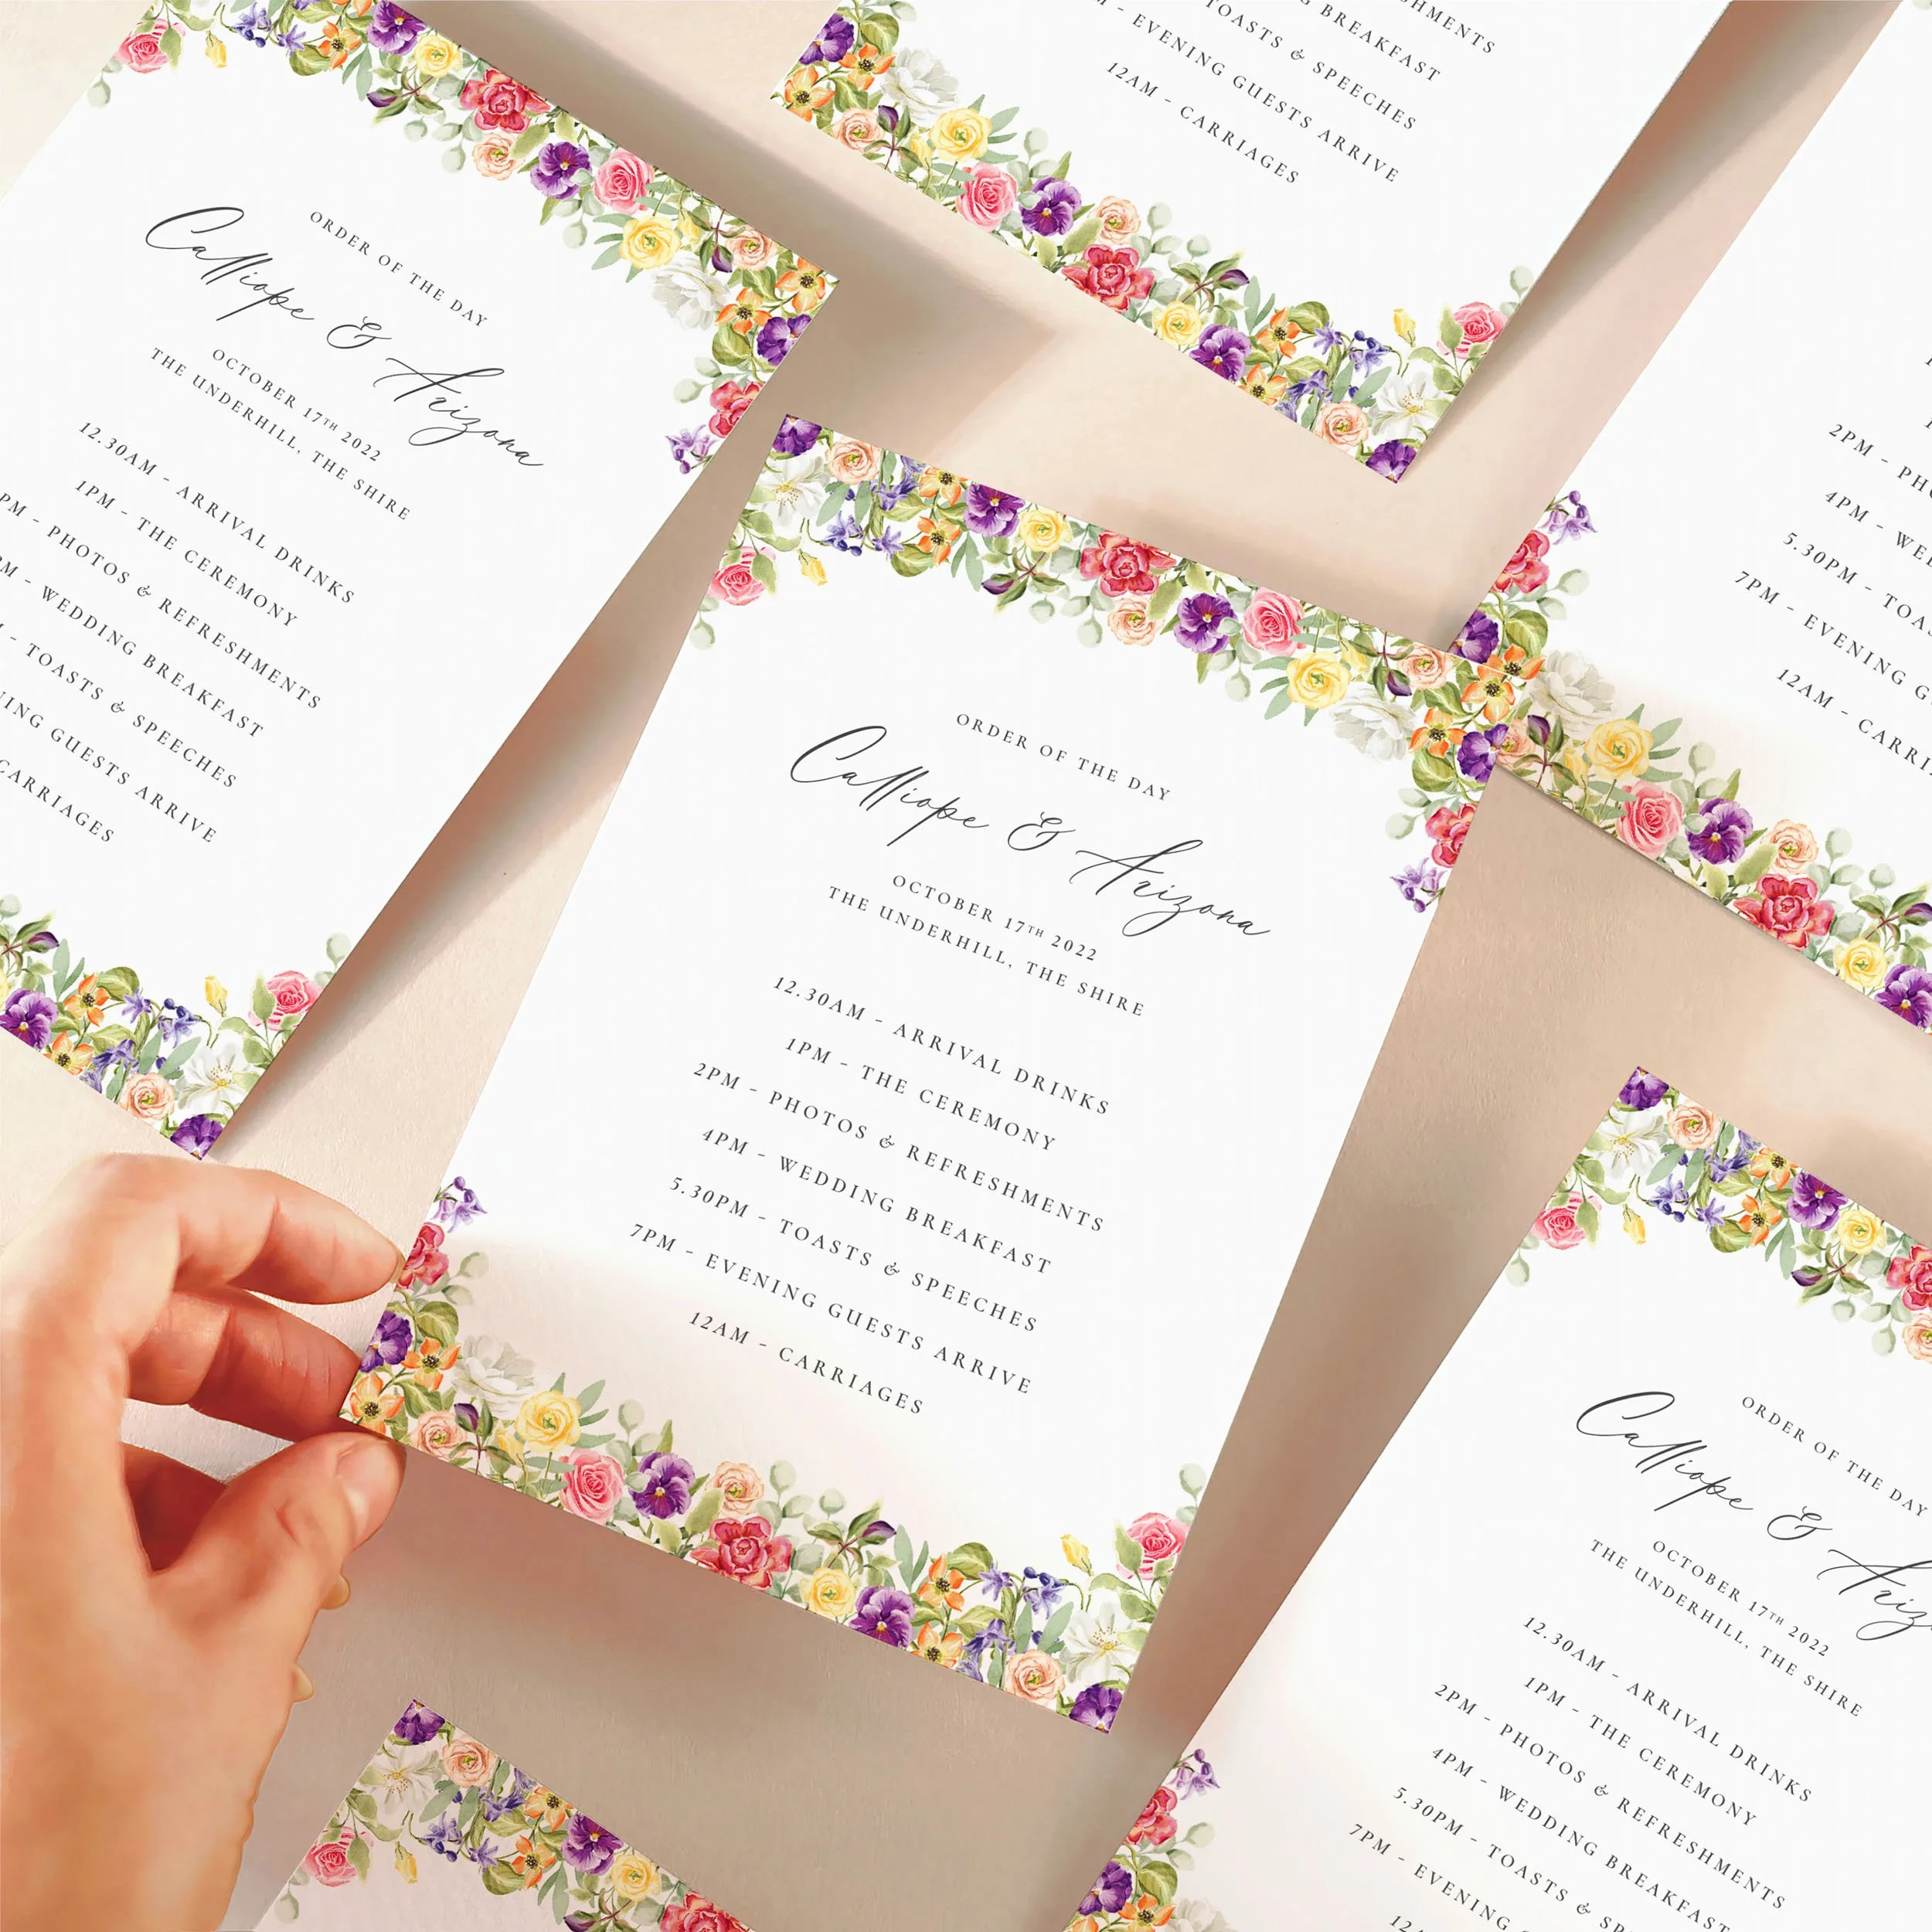 ORDER OF THE DAY
Calliope & Arizona
OCTOBER 17TH 2022
THE UNDERHILL, THE SHIRE
12.30AM - ARRIVAL DRINKS
1PM - THE CEREMONY
PM - PHOTOS & REFRESHMENTS
M - WEDDING BREAKFAST
- TOASTS & SPEECHES
ING GUESTS ARRIVE
CARRIAGES
HMENTS
G BREAKFAST
TOASTS & SPEECHES
M - EVENING GUESTS ARRIVE
12AM - CARRIAGES
2PM - PHO
4PM - WE
5.30PM - TOA
7PM - EVENING G
12AM - CARRI
ORDER OF THE DAY
Calliope & Arizona
OCTOBER 17TH 2022
THE UNDERHILL, THE SHIRE
12.30AM - ARRIVAL DRINKS
1PM - THE CEREMONY
2PM - PHOTOS & REFRESHMENTS
4PM - WEDDING BREAKFAST
5.30PM - TOASTS & SPEECHES
7PM - EVENING GUESTS ARRIVE
12AM - CARRIAGES
ORDER OF THE DAY
Calliope & Ariz
OCTOBER 17TH 2022
THE UNDERHILL, THE SHIRE
12.30AM - ARRIVAL DRINKS
1PM - THE CEREMONY
2PM - PHOTOS & REFRESHMENTS
4PM - WEDDING BREAKFAST
5.30PM - TOASTS & SP
7PM - EVENING
12A